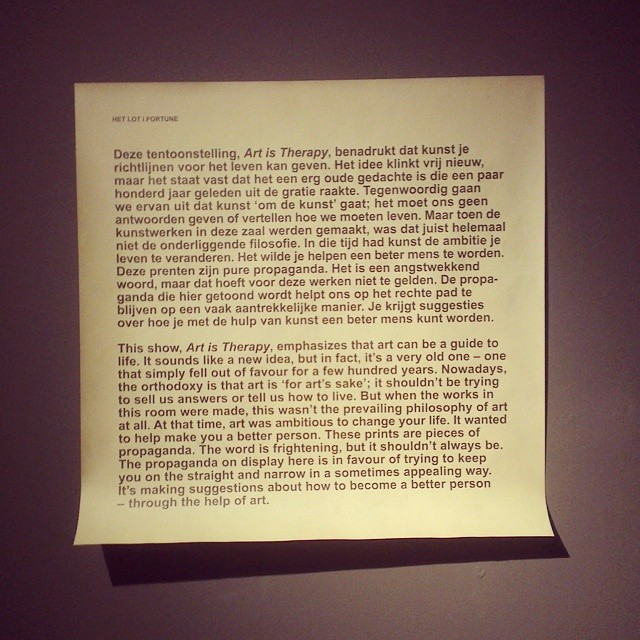 HET LOT I FORTUNE
Deze tentoonstelling, Art is Therapy, benadrukt dat kunst je
richtlijnen voor het leven kan geven. Het idee klinkt vrij nieuw,
maar het staat vast dat het een erg oude gedachte is die een paar
honderd jaar geleden uit de gratie raakte. Tegenwoordig gaan
we ervan uit dat kunst ‘om de kunst’ gaat; het moet ons geen
antwoorden geven of vertellen hoe we moeten leven. Maar toen de
kunstwerken in deze zaal werden gemaakt, was dat juist helemaal
niet de onderliggende filosofie. In die tijd had kunst de ambitie je
leven te veranderen. Het wilde je helpen een beter mens te worden.
Deze prenten zijn pure propaganda. Het is een angstwekkend
woord, maar dat hoeft voor deze werken niet te gelden. De propa-
ganda die hier getoond wordt helpt ons op het rechte pad te
blijven op een vaak aantrekkelijke manier. Je krijgt suggesties
over hoe je met de hulp van kunst een beter mens kunt worden.
This show, Art is Therapy, emphasizes that art can be a guide to
life. It sounds like a new idea, but in fact, it’s a very old one – one
that simply fell out of favour for a few hundred years. Nowadays,
the orthodoxy is that art is ‘for art’s sake’; it shouldn’t be trying
to sell us answers or tell us how to live. But when the works in
this room were made, this wasn’t the prevailing philosophy of art
at all. At that time, art was ambitious to change your life. It wanted
to help make you a better person. These prints are pieces of
propaganda. The word is frightening, but it shouldn’t always be.
The propaganda on display here is in favour of trying to keep
you on the straight and narrow in a sometimes appealing way.
It’s making suggestions about how to become a better person
– through the help of art.